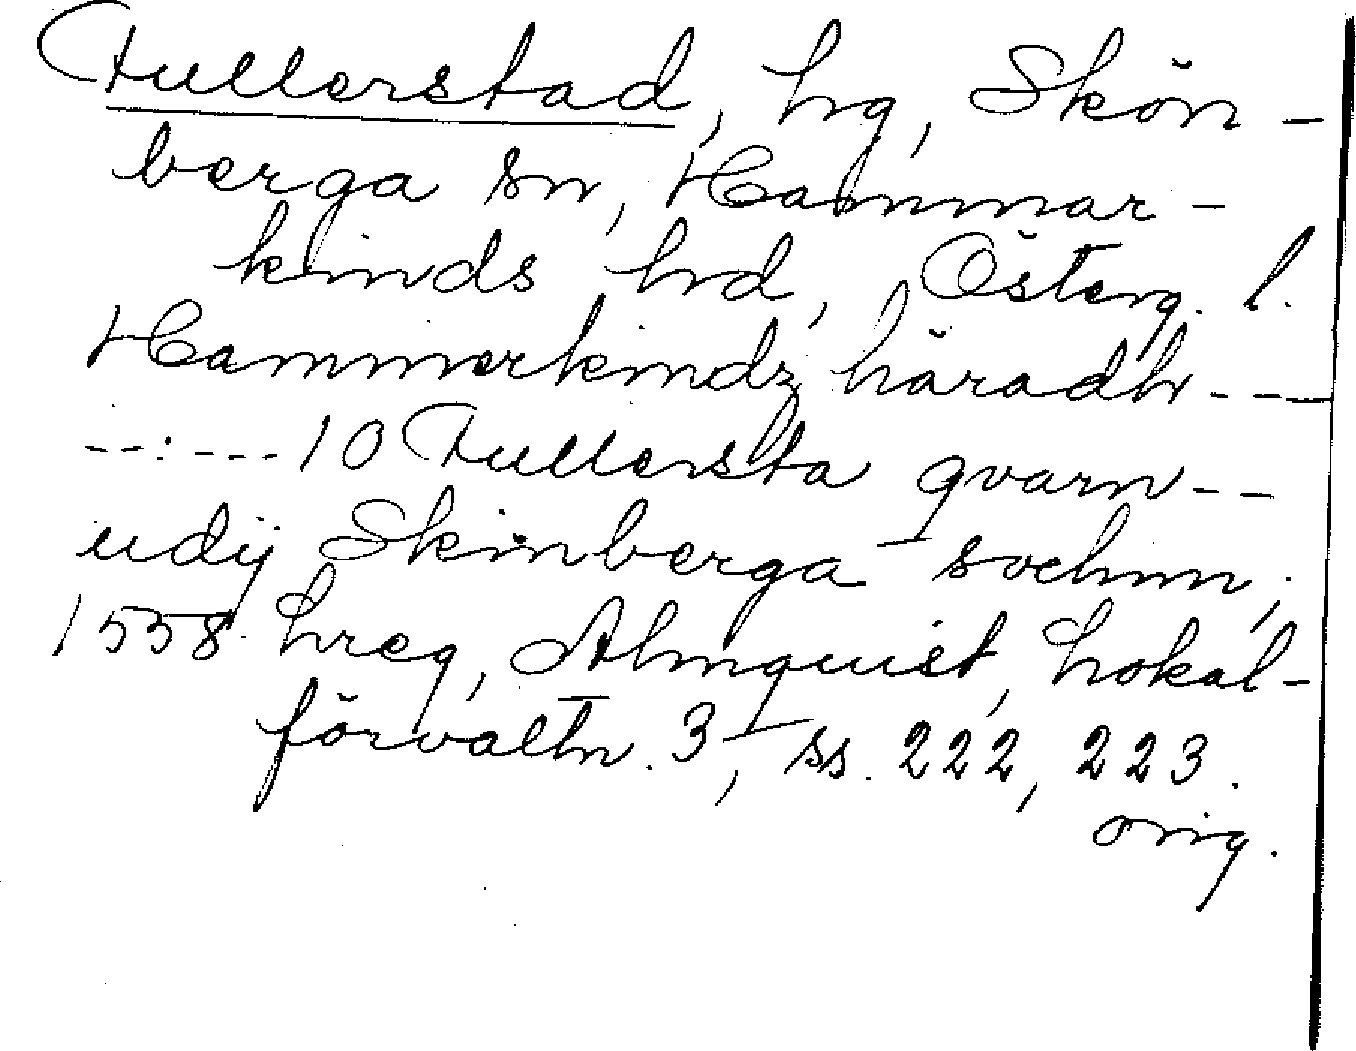 Fullerstad, hg, Skön-
berga sn, Hammar-
kinds hd, Österg. l.
Hammerkindz häradh ---
--:---10 Fullersta qvarn--
udij Skinberga sochnn,.
1558 hreg, Almquist, Lokal-
förvaltn. 3, ss. 222, 223.
orig.